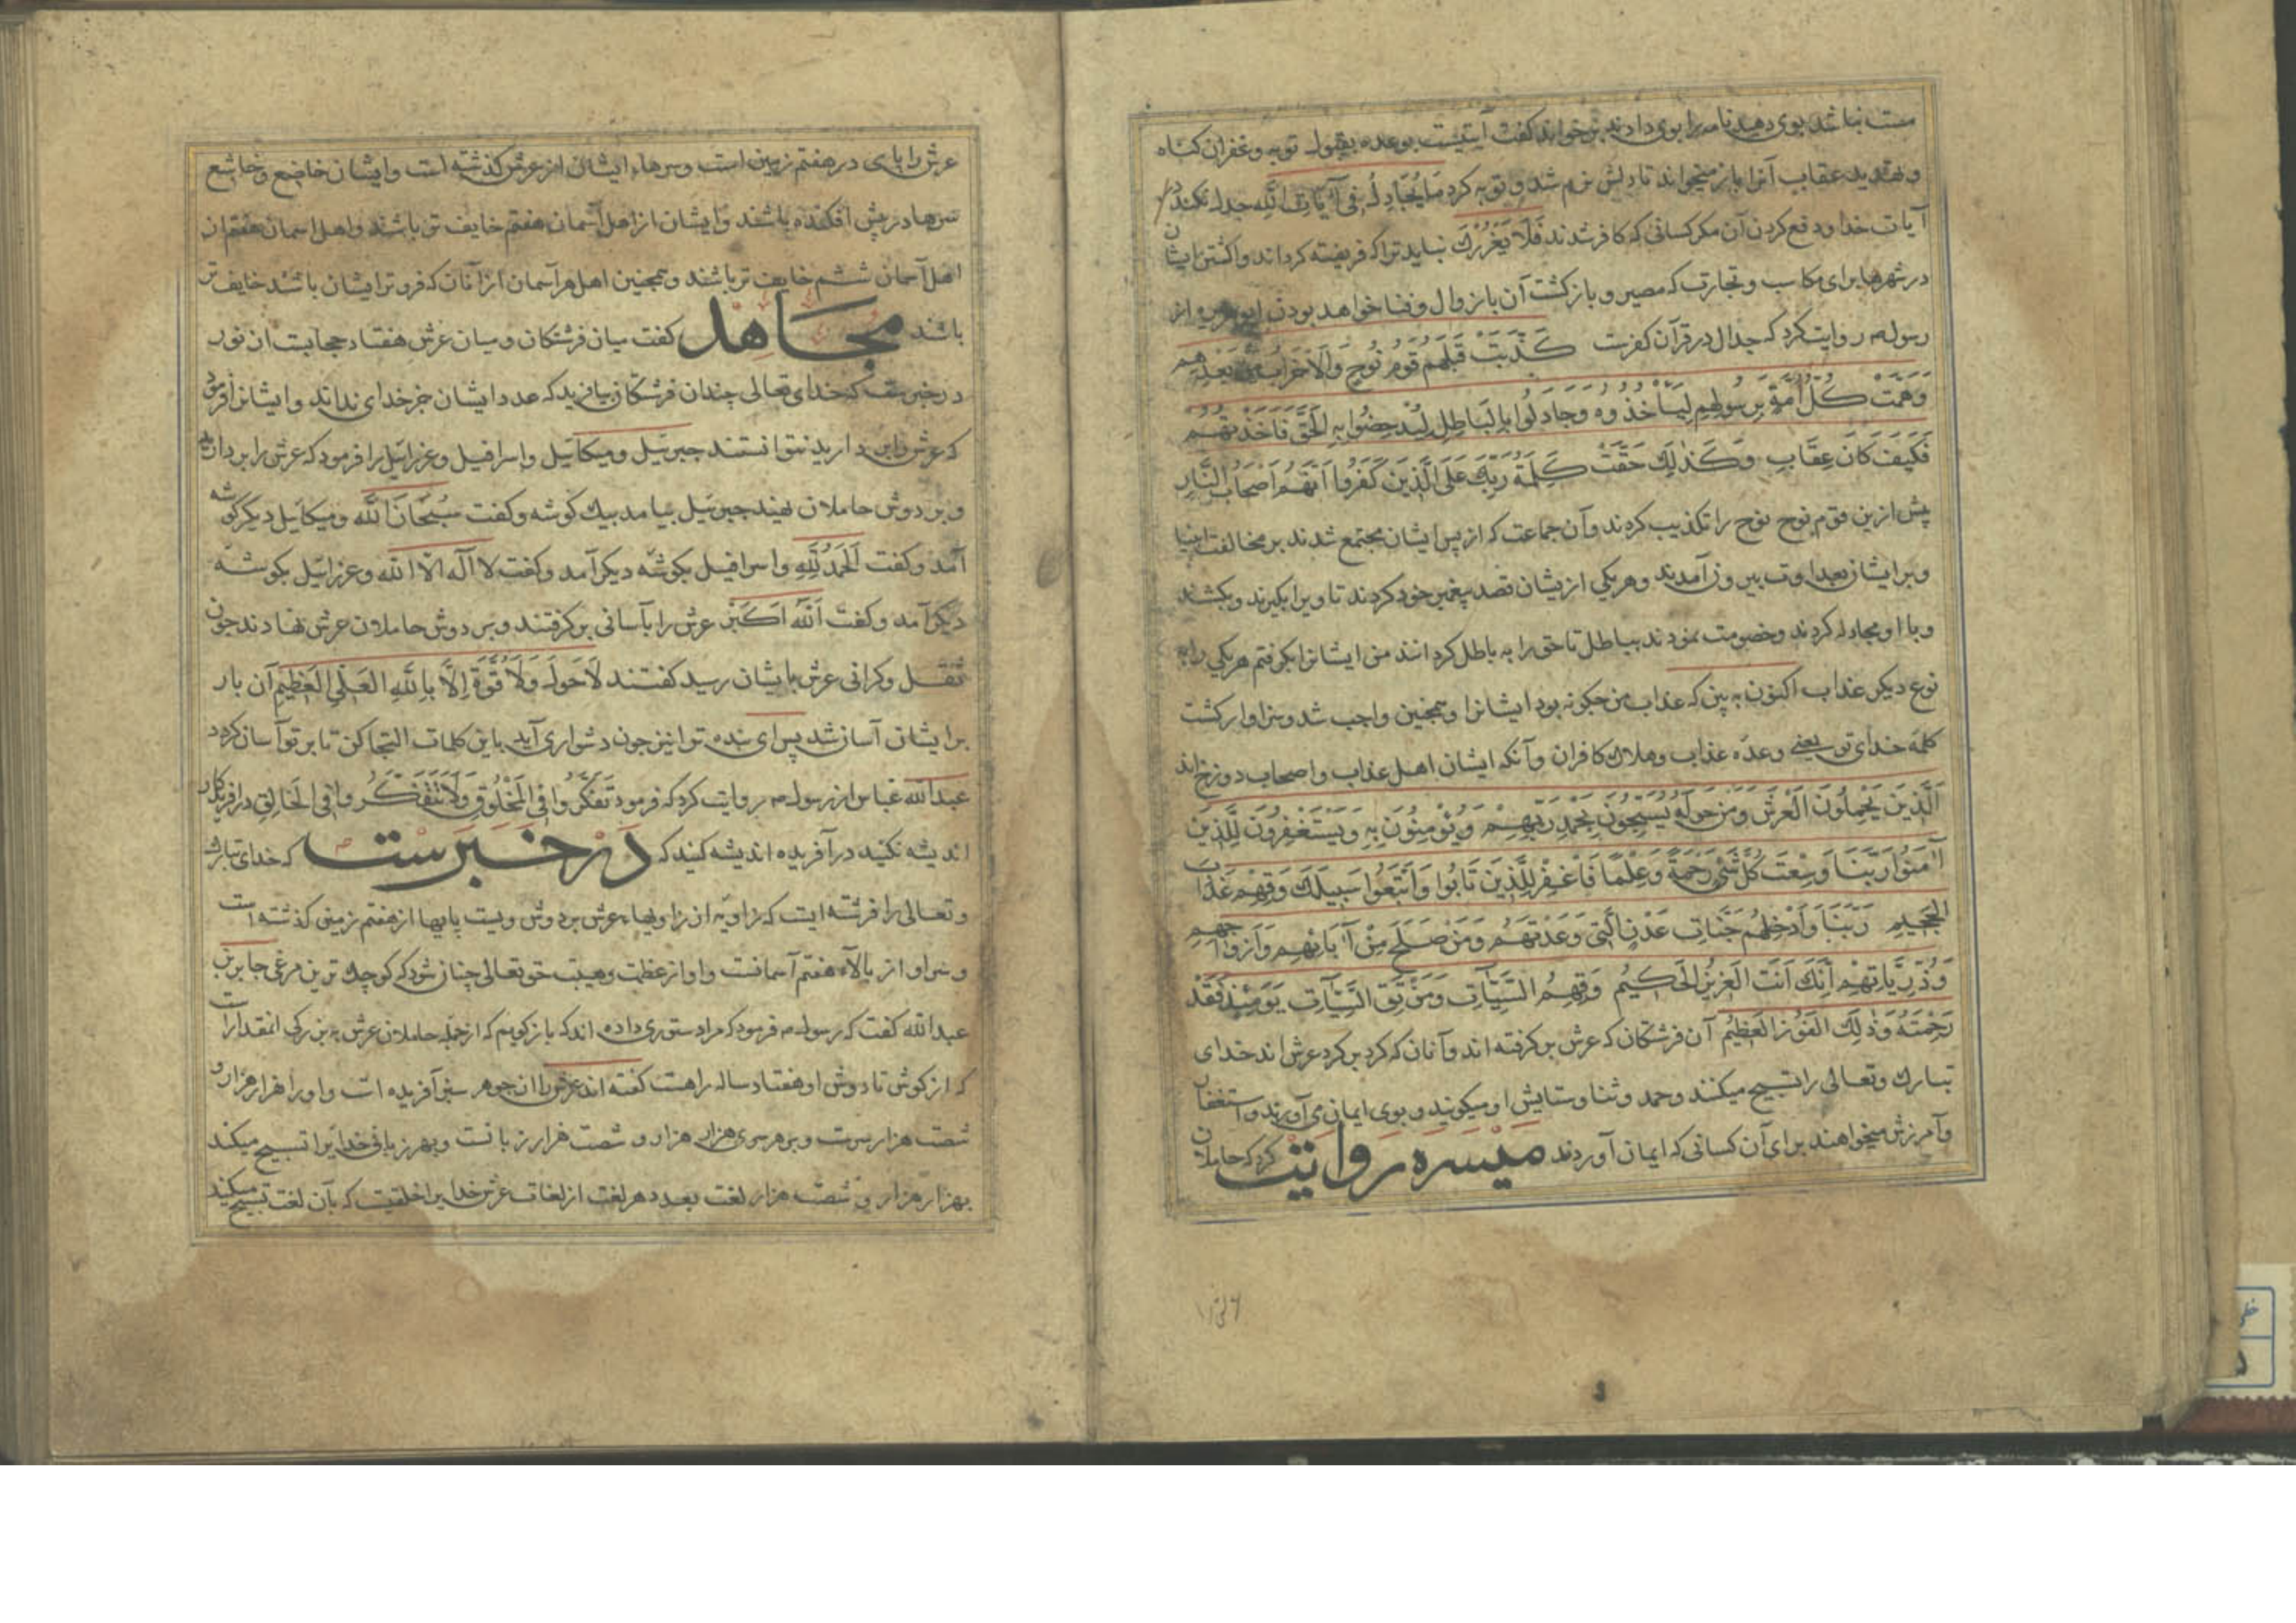 مست نباشد بوی دهید نامه را بوی دادند برخواند گفت آیتیست بوعده بقبول توبه و غفران کناه
و تهدید عقاب آنرا باز میخواند تا دلش نرم شد و توبه کرد مَا یُجَادِلُ فِی آیَاتِ اللّٰه جدل نکند در
آیات خدا و دفع کردن آن مکر کسانی که کافر شدند فَلَا یَغْرُرْکَ نباید ترا که فریفته کرداند واکشتن ایشان
در شهرها برای مکاسب و تجارت که مصیر و بازکشت آن با زوال و فنا خواهد بودن ابوهریره از
رسول م روایت کرد که جدال در قرآن کفرست کَذَّبَتْ قَبْلَهُمْ قَوْمُ نُوحٍ وَالْاَحْزَابُ مِنْ بَعْدِهِمْ
وَهَمَّتْ کُلُّ اُمَّةٍ بِرَسُولِهِمْ لِیَأْخُذُوهُ وَجَادَلُوا بِالْبَاطِلِ لِیُدْحِضُوا بِهِ الْحَقَّ فَاَخَذْتُهُمْ
فَکَیْفَ کَانَ عِقَابِ وَکَذٰلِکَ حَقَّتْ کَلِمَةُ رَبِّکَ عَلَی الَّذِینَ کَفَرُوا اَنَّهُمْ اَصْحَابُ النَّارِ
پیش ازین قوم نوح نوح را تکذیب کردند و آن جماعت که از پس ایشان مجتمع شدند بر مخالفت انبیا
و بر ایشان بعداوت بیرون آمدند و هر یکی ازیشان قصد پیغمبر خود کردند تا ویرا بکیرند و بکشند
و با او مجادله کردند و خصومت نمودند بباطل تا حق را به باطل کردانند من ایشانرا بکرفتم هر یکی را به
نوع دیکر عذاب اکنون به بین که عذاب من چکونه بود ایشانرا و همچنین واجب شد و سزاوار کشت
کلمهٔ خدای تو یعنی وعدهٔ عذاب و هلاک کافران و آنکه ایشان اهل عذاب و اصحاب دوزخ اند
اَلَّذِینَ یَحْمِلُونَ الْعَرْشَ وَمَنْ حَوْلَهُ یُسَبِّحُونَ بِحَمْدِ رَبِّهِمْ وَیُؤْمِنُونَ بِهِ وَیَسْتَغْفِرُونَ لِلَّذِینَ
آمَنُوا رَبَّنَا وَسِعْتَ کُلَّ شَیْءٍ رَحْمَةً وَعِلْمًا فَاغْفِرْ لِلَّذِینَ تَابُوا وَاتَّبَعُوا سَبِیلَکَ وَقِهِمْ عَذَابَ
الْجَحِیمِ رَبَّنَا وَاَدْخِلْهُمْ جَنَّاتِ عَدْنٍ الَّتِی وَعَدْتَهُمْ وَمَنْ صَلَحَ مِنْ آبَائِهِمْ وَاَزْوَاجِهِمْ
وَذُرِّیَّاتِهِمْ اِنَّکَ اَنْتَ الْعَزِیزُ الْحَکِیمُ وَقِهِمُ السَّیِّئَاتِ وَمَنْ تَقِ السَّیِّئَاتِ یَوْمَئِذٍ فَقَدْ
رَحِمْتَهُ وَذٰلِکَ الْفَوْزُ الْعَظِیمُ آن فرشتکان که عرش بر کرفته اند و آنان که کرد بر کرد عرش اند خدای
تبارک و تعالی را تسبیح میکنند و حمد و ثنا و ستایش او میکویند و بوی ایمان می آورند و استغفار
و آمرزش میخواهند برای آن کسانی که ایمان آوردند میسره روایت کرد که حاملان
عرش را پای در هفتم زمین است و سرهاء ایشان از عرش کذشته است و ایشان خاضع و خاشع
سرها در پیش افکنده باشند و ایشان از اهل آسمان هفتم خایف تر باشند و اهل اسمان هفتم از
اهل آسمان ششم خایف تر باشند و همچنین اهل هر آسمان از آنان که فروتر ایشان باشد خایف تر
باشند مجاهد کفت میان فرشتکان و میان عرش هفتاد حجابست از نور
در خبرست که خدای تعالی چندان فرشتکان بیافرید که عدد ایشان جز خدای نداند و ایشانرا فرمود
که عرش را بر دارید نتوانستند جبرئیل و میکائیل و اسرافیل و عزرائیل را فرمود که عرش را بردارید
و بر دوش حاملان نهید جبرئیل بیامد بیک کوشه و کفت سُبْحَانَ اللّٰه و میکائیل دیکر کوشه
آمد و کفت اَلْحَمْدُ لِلّٰهِ و اسرافیل بکوشه دیکر آمد و کفت لا اله الّا الله و عزرائیل بکوشه
دیکر آمد و کفت اَللّٰهُ اَکْبَر عرش را بآسانی بر کرفتند و بر دوش حاملان عرش نهادند چون
ثقل و کرانی عرش بایشان رسید کفتند لَا حَوْلَ وَلَا قُوَّةَ اِلَّا بِاللّٰهِ الْعَلِیِّ الْعَظِیمِ آن بار
بر ایشان آسان شد پس ای بنده ترا نیز چون دشواری آید باین کلمات التجا کن تا بر تو آسان کردد
عبدالله عباس از رسول م روایت کرد که فرمود تَفَکَّرُوا فِی الْمَخْلُوقِ وَلَا تَتَفَکَّرُوا فِی الْخَالِقِ در آفریدکار
اندیشه نکنید در آفریده اندیشه کنید که در خبرست که خدای تبارک
و تعالی را فرشته ایست که زاویه از زاویهاء عرش بر دوش ویست پایها از هفتم زمین کذشته است
و سر او از بالاء هفتم آسمانست و او از عظمت و هیبت حق تعالی چنان شود که کوچک ترین مرغی جابر بن
عبدالله کفت که رسول م فرمود که مرا دستوری داده اند که باز کویم که از جمله حاملان عرش به بزرکی انمقدار است
که از کوش تا دوش او هفتاد ساله راهست کفته اند عرش را از جوهر سبز آفریده است و او را هزار هزار و
شصت هزار سرست و بر هر سری هزار هزار و شصت هزار زبانست و بهر زبانی خدایرا تسبیح میکند
بهزار هزار و شصت هزار لغت بعدد هر لغت از لغات عرش خدایرا خلقیست که بآن لغت تسبیح میکند